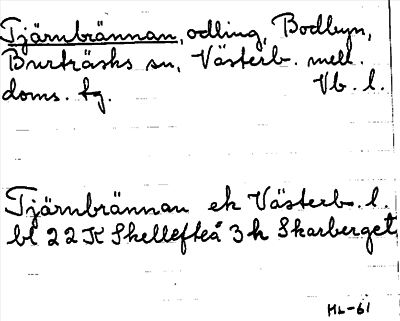 Tjärnbrännan, odling, Bodbyn,
Burträsks sn, Västerb. mell.
doms. fg. Vb. l.
Tjärnbrännan ek Västerb. l.
bl 22K Skellefteå 3h Skarberget
ML-61